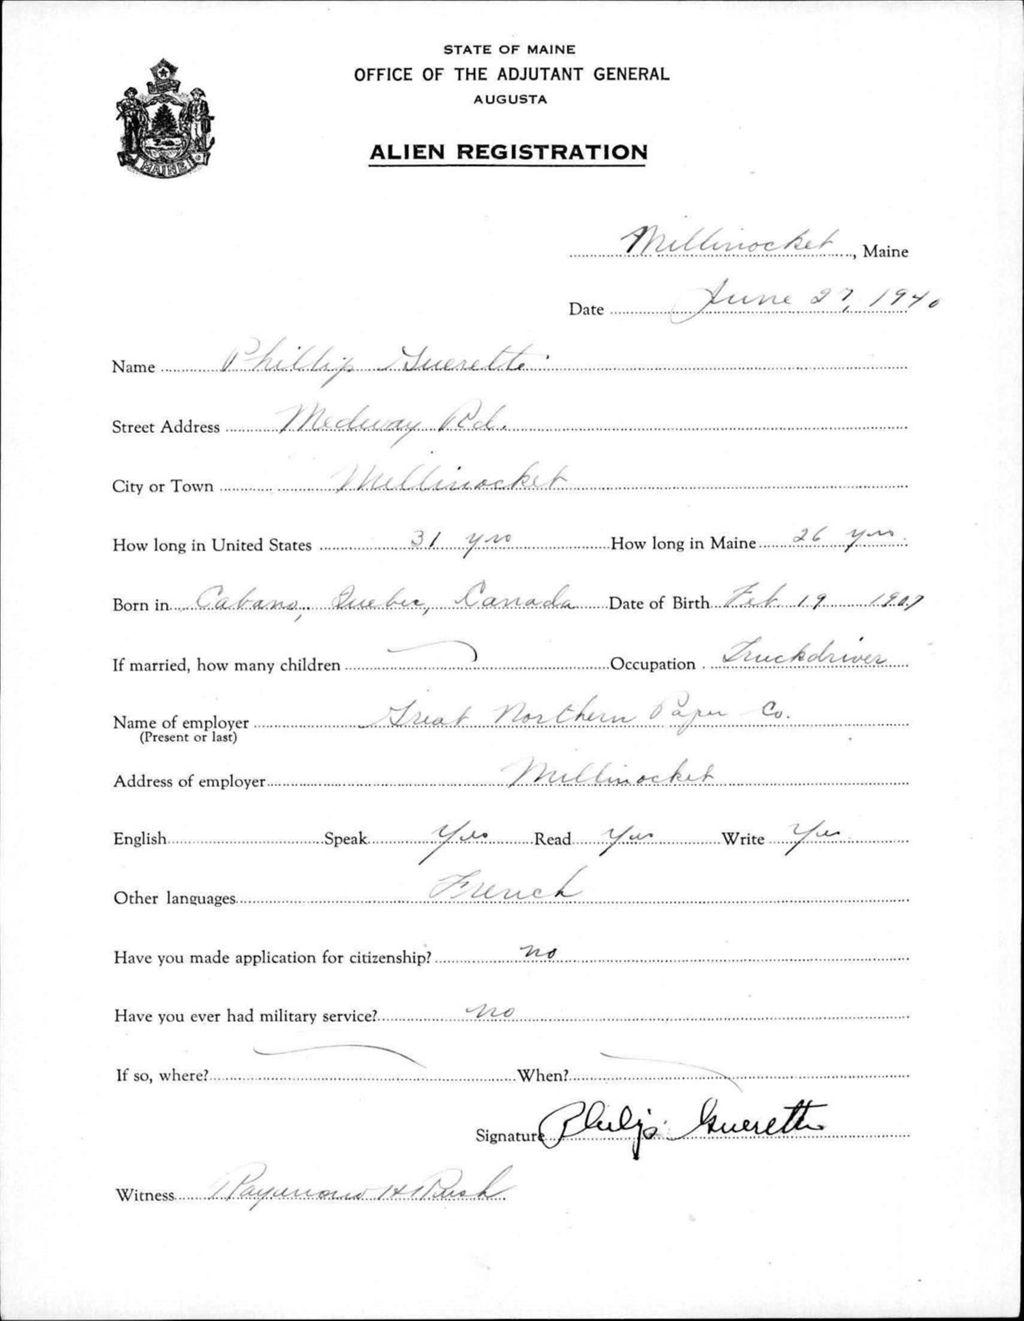 STATE OF MAINE
OFFICE OF THE ADJUTANT GENERAL
AUGUSTA
MAINE
ALIEN REGISTRATION
Millinocket, Maine
Date June 27, 1940
Name Phillip Guerette
Street Address Medway Rd.
City or Town Millinocket
How long in United States 31 yrs How long in Maine 26 yrs
Born in Cabano, Quebec, Canada Date of Birth Feb 19 1907
If married, how many children Occupation Truckdriver
Name of employer Great Northern Paper Co.
(Present or last)
Address of employer Millinocket
English Speak Yes Read Yes Write Yes
Other languages French
Have you made application for citizenship? no
Have you ever had military service? no
If so, where? When?
Signature Philip Guerette
Witness Raymond H Rush